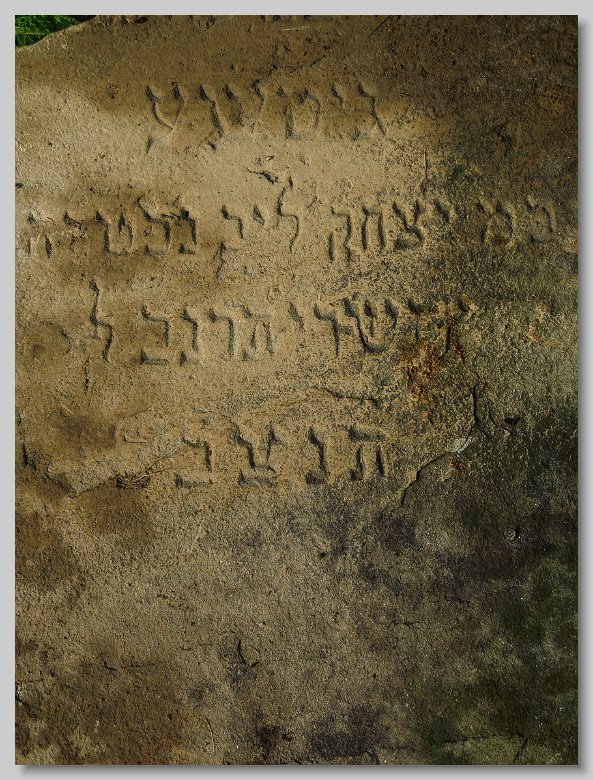 גיטעלע
במ יצחק ליב נפטרה
תשרי תרנב ל
תנצבה